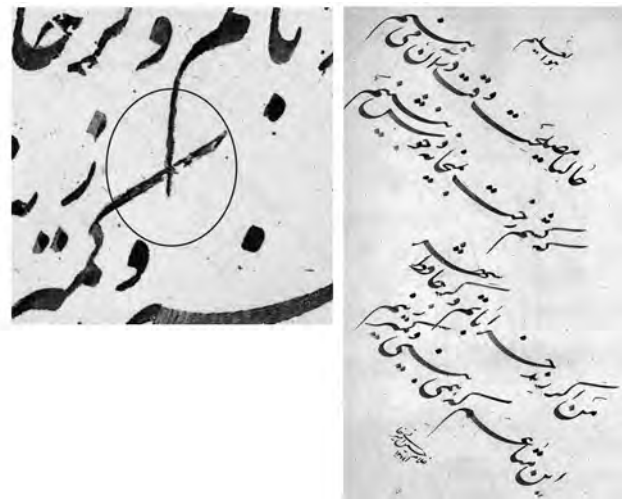 هوالعلیم
حالیا مصلحت وقت در آن می بینم
که کشم رخت بمیخانه و خوش بنشینم
من اگر رند خراباتم و گر حافظ شهر
این متاعم که همی بینی و کمتر زینم